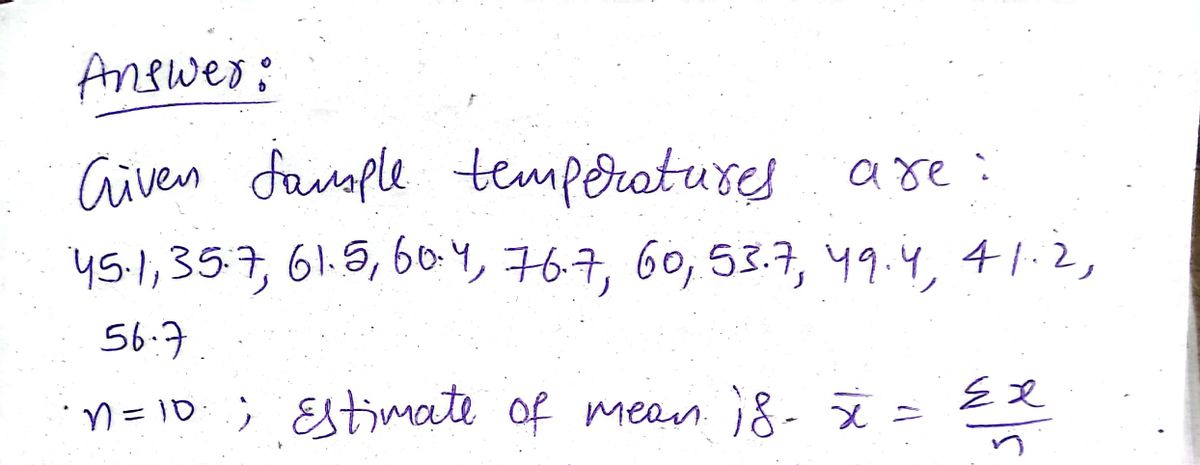 Answer:
Given Sample temperatures are:
45.1, 35.7, 61.5, 60.4, 76.7, 60, 53.7, 49.4, 41.2,
56.7
n=10 ; Estimate of mean is- x̄ = Σx/n